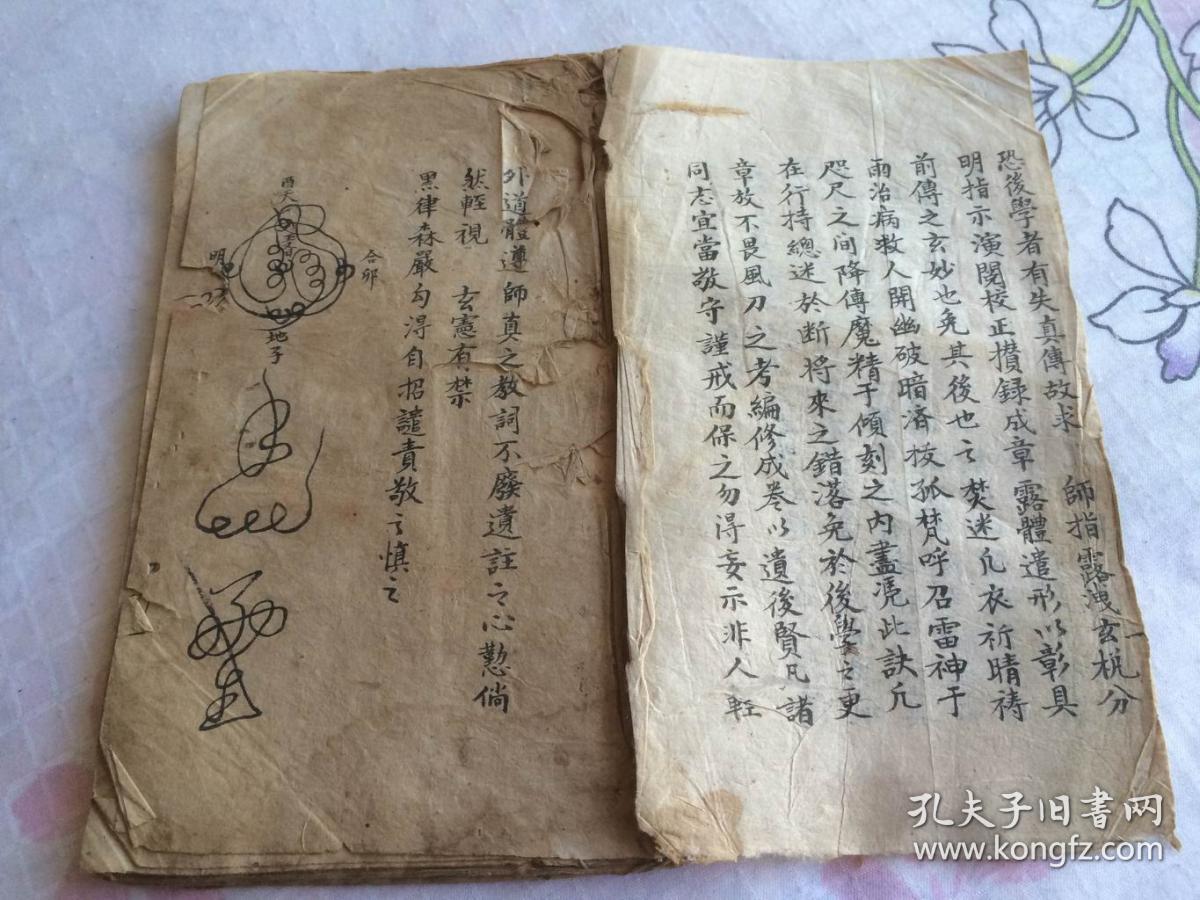 恐後學者有失真傳故求　師指露洩玄杋分
明指示演閱校正攢録成章露體遣形以彰具
前傳之玄妙也免其後也之焚迷凡衣祈晴祷
雨治病救人開幽破暗済拔孤梵呼召雷神于
咫尺之间降傳魔精于傾刻之内盡凴此訣凡
在行持總迷於断將來之錯落免於後學之更
章放不畏風刀之考編修成卷以遺後賢凡諸
同志宜當敬守謹戒而保之勿得妄示非人輊
外道體遵師真之教詞不廢遺註之心懃倘
然輊視　玄憲有禁
黒律森嚴勾得自招譴責敬之慎之
合卯
酉天
明
地子
孔夫子旧书网
www.kongfz.com